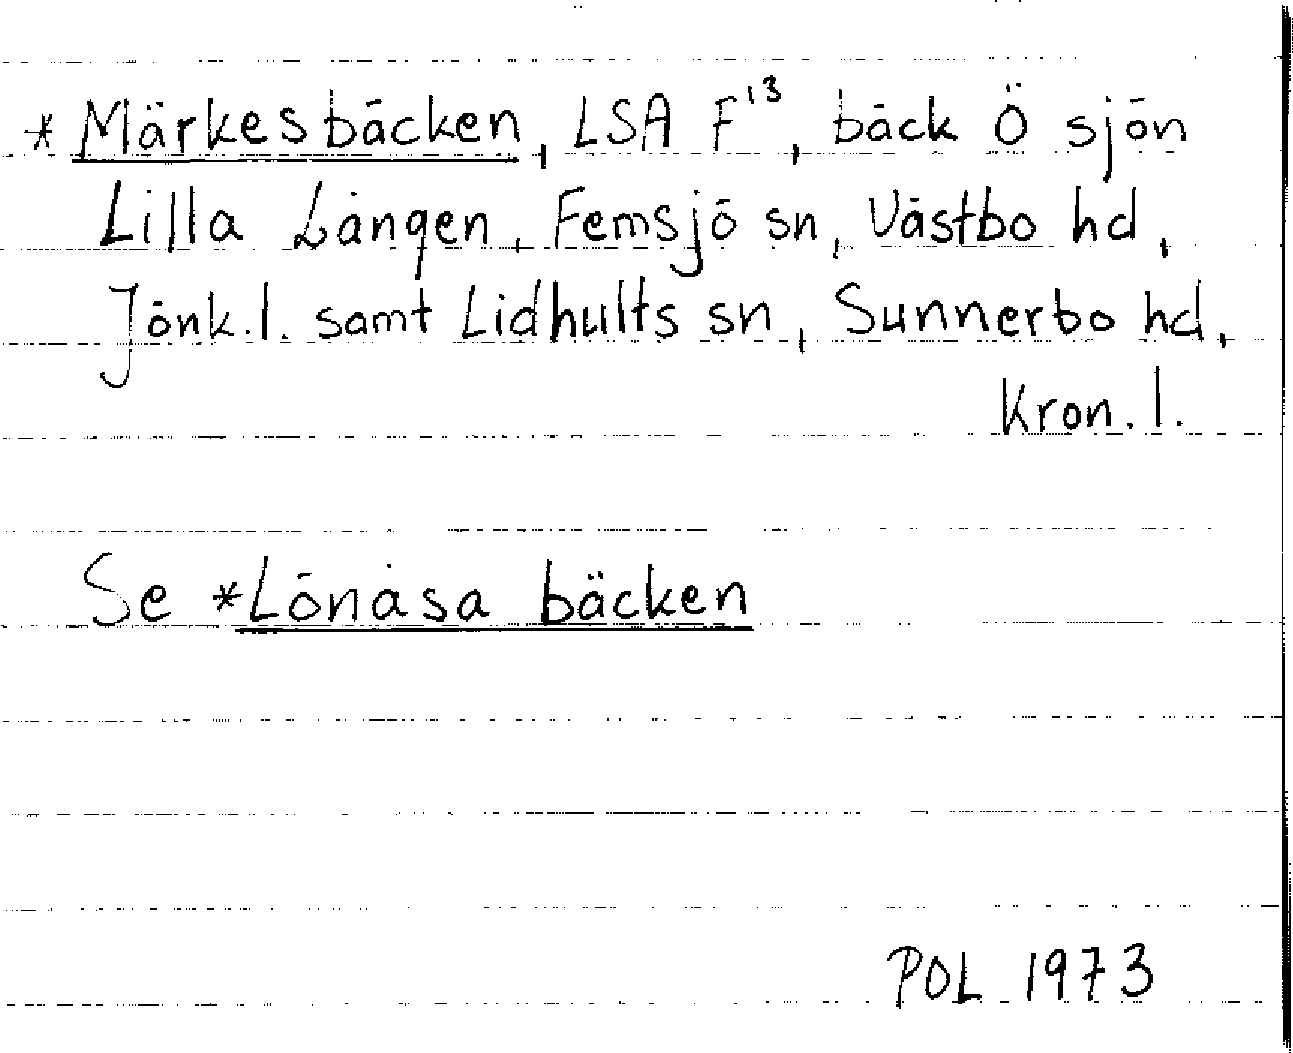 * Märkesbäcken, LSA F¹³, bäck Ö sjön
Lilla Lången, Femsjö sn, Västbo hd,
Jönk.l. samt Lidhults sn, Sunnerbo hd,
Kron.l.
Se *Lönåsa bäcken
POL 1973